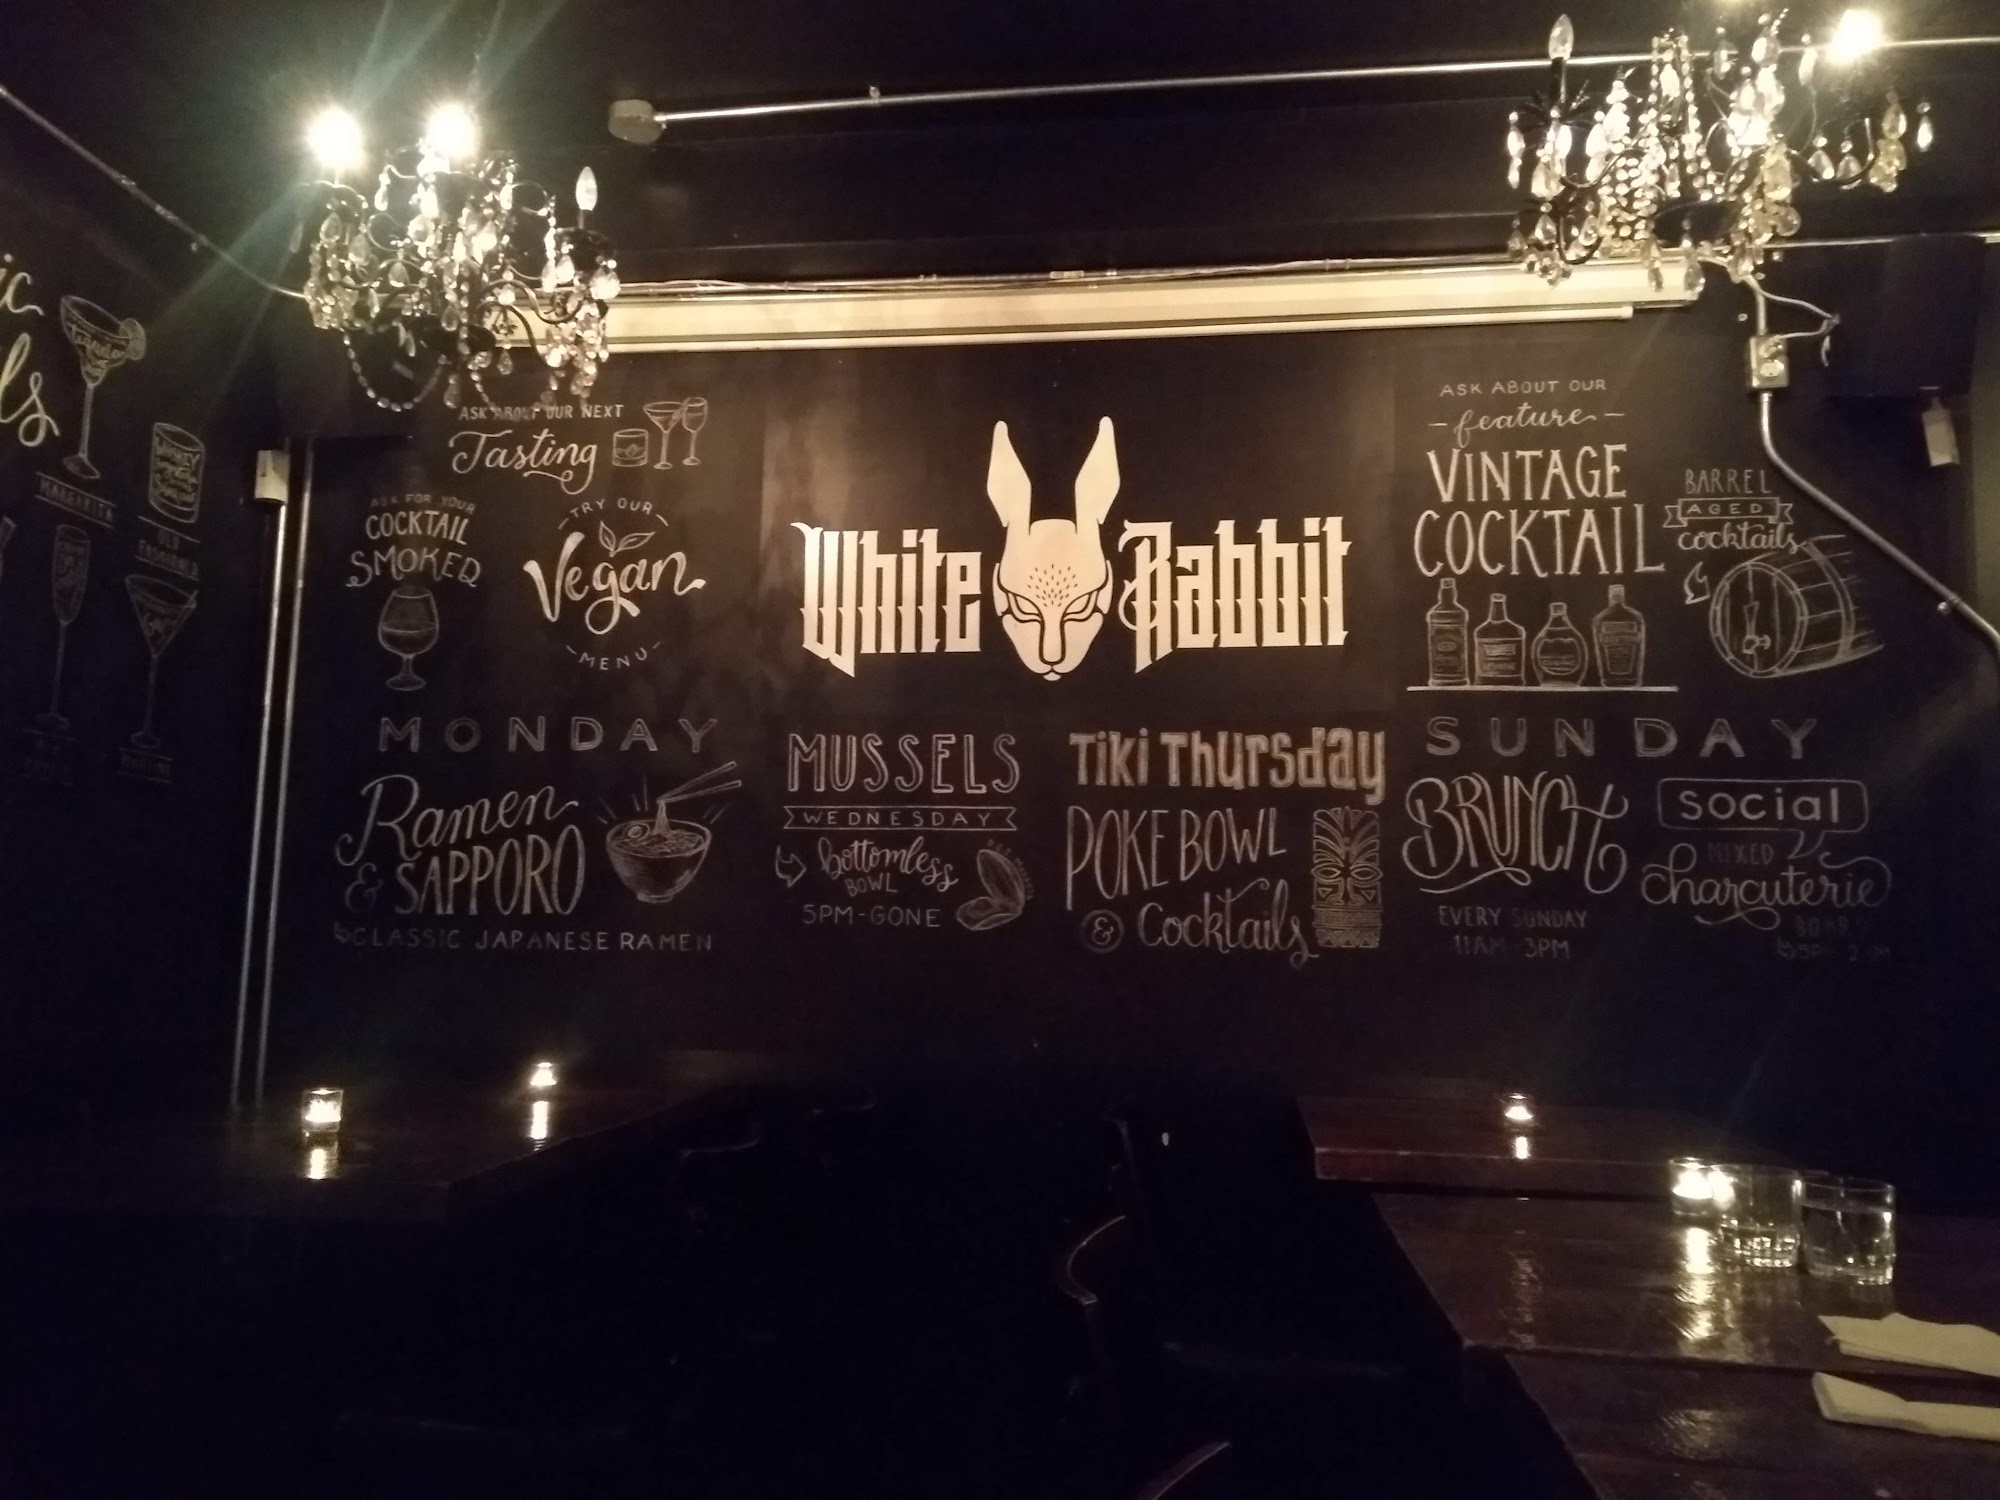 MARGARITA
WHISKEY
OLD
FASHIONED
ASK ABOUT OUR NEXT
Tasting
ASK FOR YOUR
COCKTAIL
SMOKED
TRY OUR
Vegan
MENU
White Rabbit
ASK ABOUT OUR
feature
VINTAGE
COCKTAIL
BARREL
AGED
cocktails
MONDAY
Ramen
& SAPPORO
CLASSIC JAPANESE RAMEN
MUSSELS
WEDNESDAY
bottomless
BOWL
5PM-GONE
Tiki Thursday
POKE BOWL
& Cocktails
SUNDAY
BRUNCH
EVERY SUNDAY
11AM-3PM
social
MIXED
charcuterie